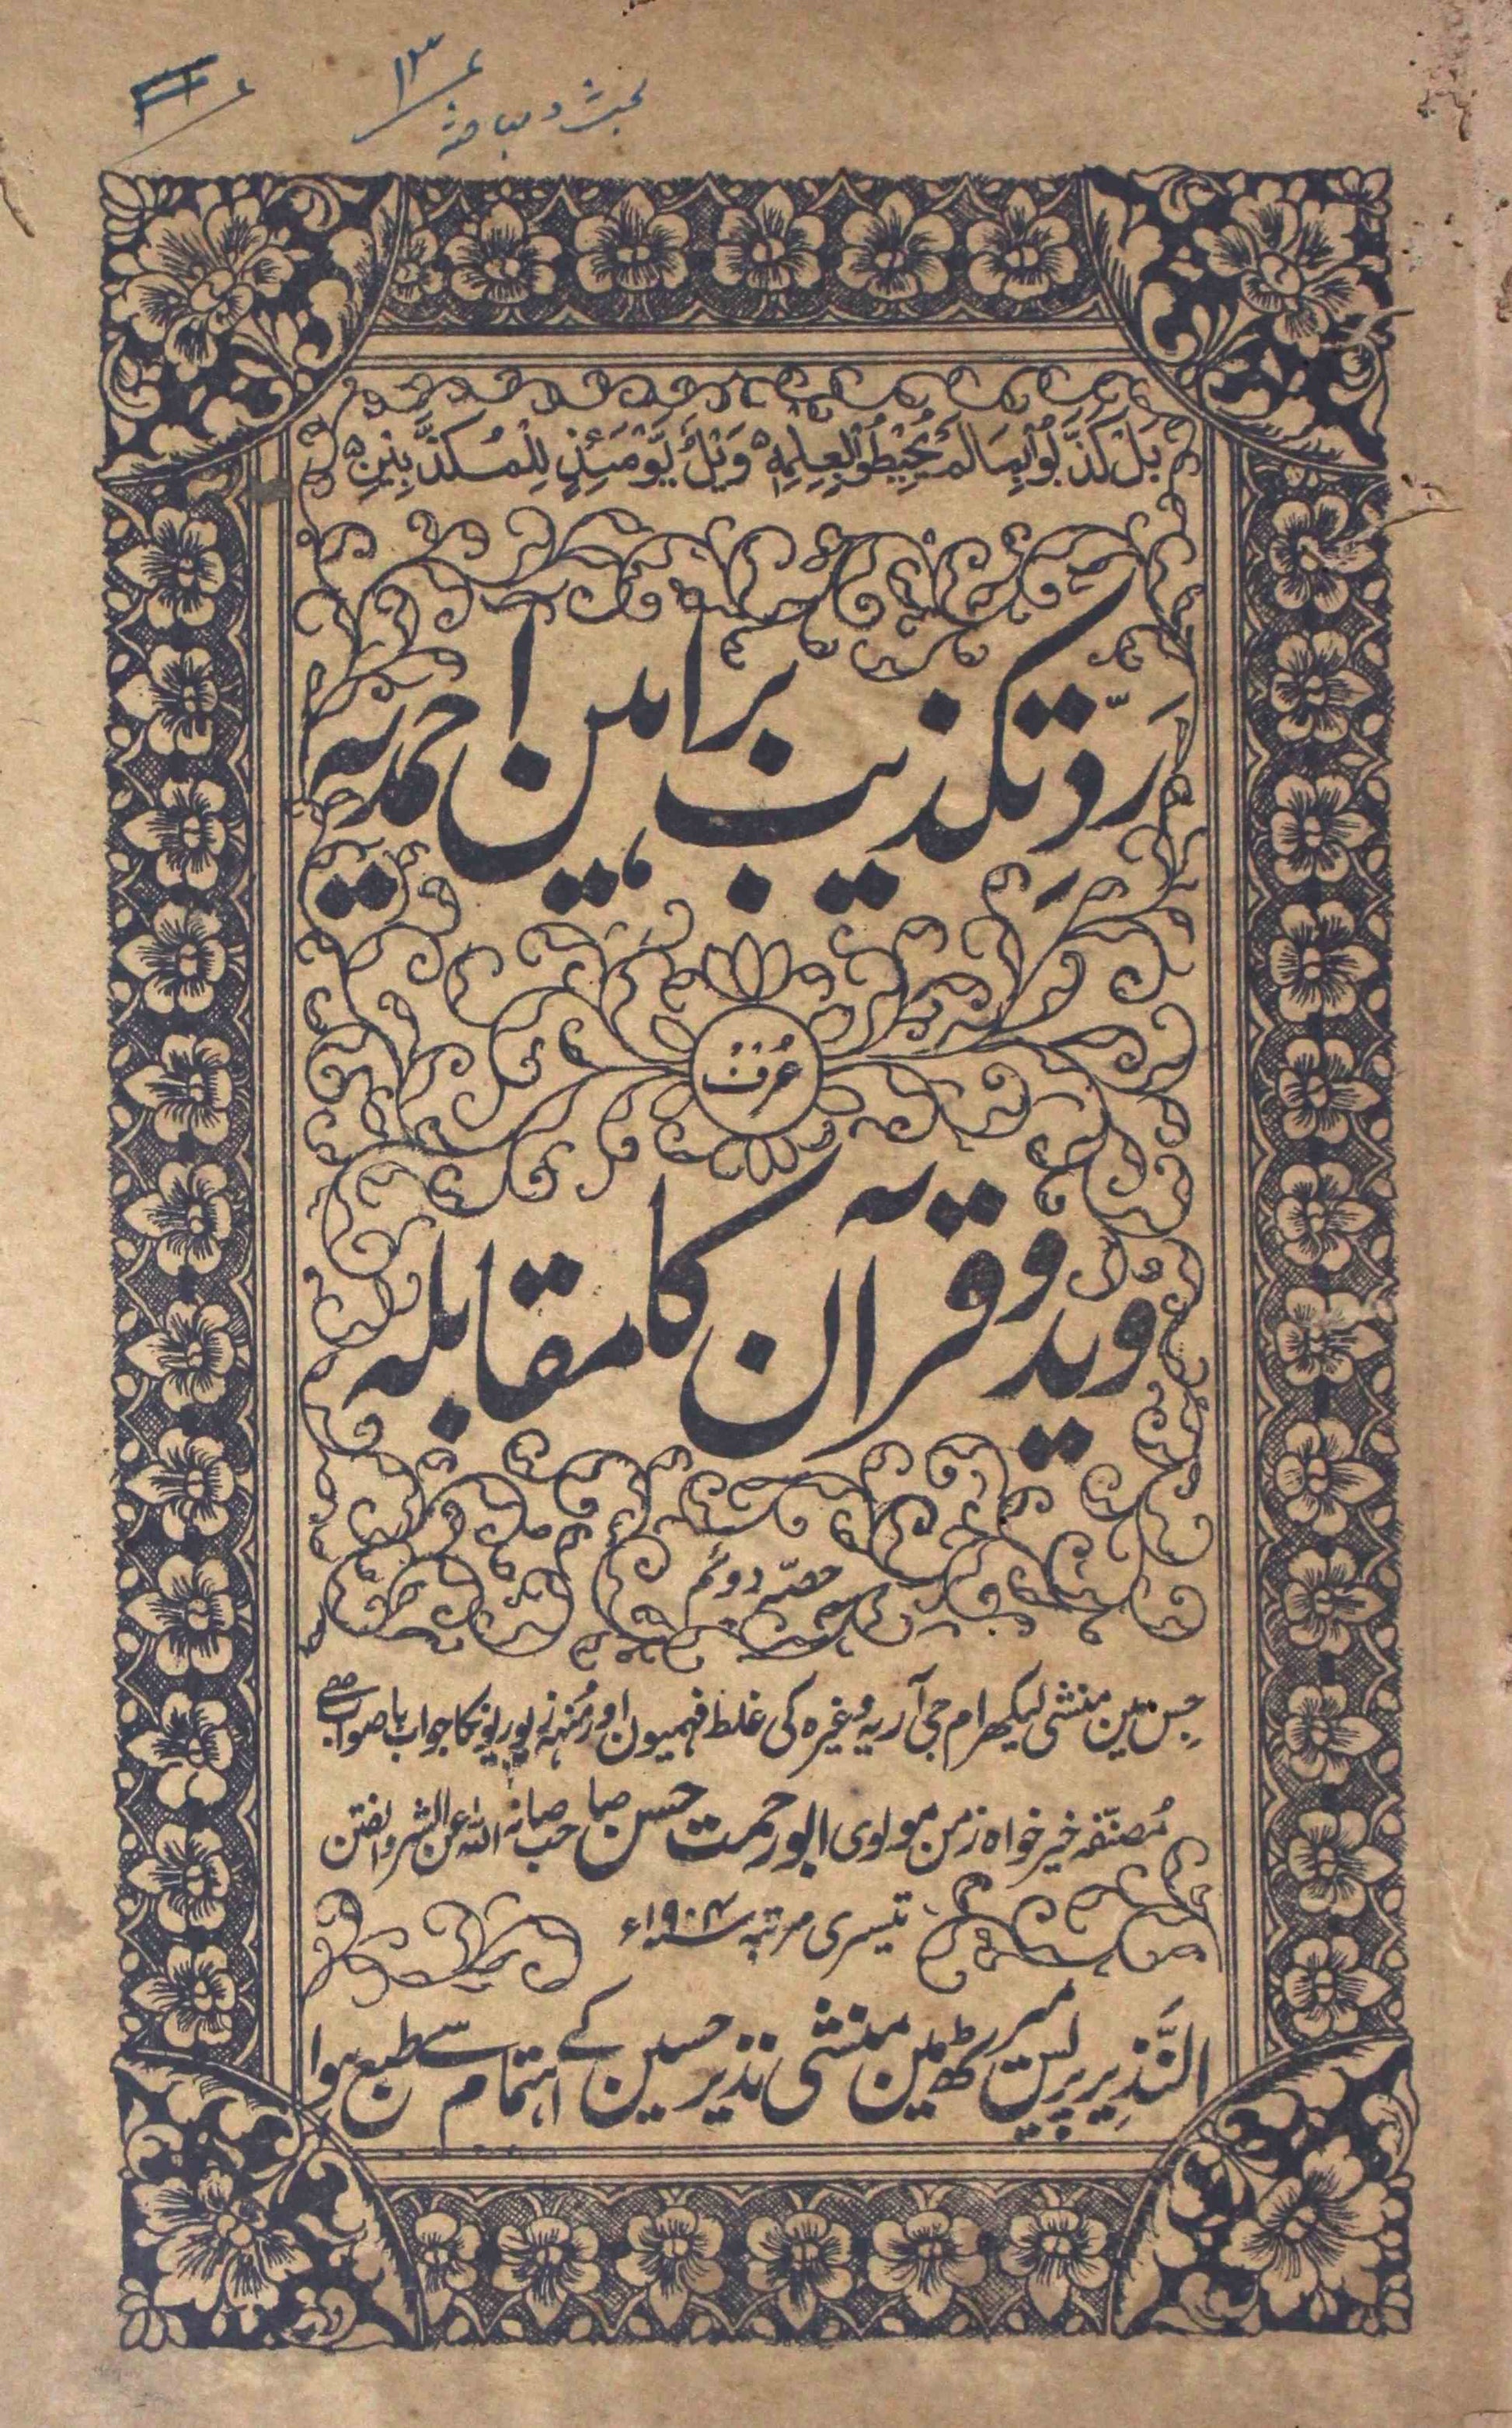 بحث و مباحثہ
۱۳
بَلْ كَذَّبُوْا بِمَا لَمْ يُحِيْطُوْا بِعِلْمِهٖ ۵ وَيْلٌ يَّوْمَئِذٍ لِّلْمُكَذِّبِيْنَ ۵
رَدِّ تکذیب براہین احمدیہ
عُرف
وید و قرآن کا مقابلہ
حصّہ دوئم
جس مین منشی لیکھرام جی آریہ وغیرہ کی غلط فہمیون اور مُنہ زوریونکا جواب باصواب ہے
مُصنّفہ خیر خواہ زمن مولوی ابو رحمت حسن صاحب صانہ اللہ عن الشر والفتن
تیسری مرتبہ سنہ ۱۹۰۴ء
النَّذِیر پریس میرٹھ مین منشی نذیر حسین کے اہتمام سے طبع ہوا